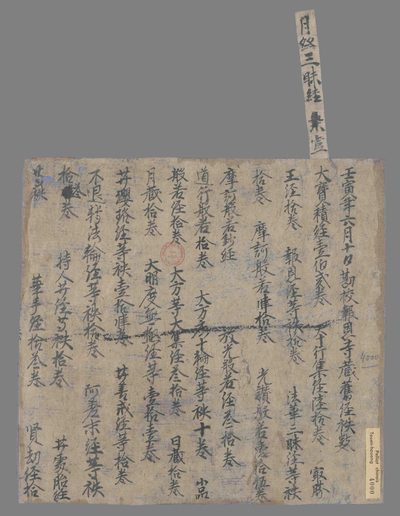 月燈三昧經
壬寅年六月十日勘校報恩寺藏舊經袟數
大寶積經壹伯貳卷 大十行集經陸拾卷 寂勝
王經拾卷 報恩經等袟拾卷 法華三昧經等袟
拾卷 摩訶般若肆拾卷 光讚般若壹拾伍卷
摩訶般若鈔經 放光般若經叁拾卷
道行般若拾卷 大方廣十輪經等袟十卷 小品
般若經拾卷 大方等大集經叁拾卷 日藏拾卷
月藏拾卷 大明度無極經等壹拾壹卷
瓔珞經等袟壹拾肆卷 善戒經等拾卷
不退轉法輪經等袟拾卷 阿差末經等袟
拾卷 持人经等袟拾卷 處胎經
等袟 華手經拾叁卷 賢劫經拾
4000
Pelliot chinois
Touen-houang
4000